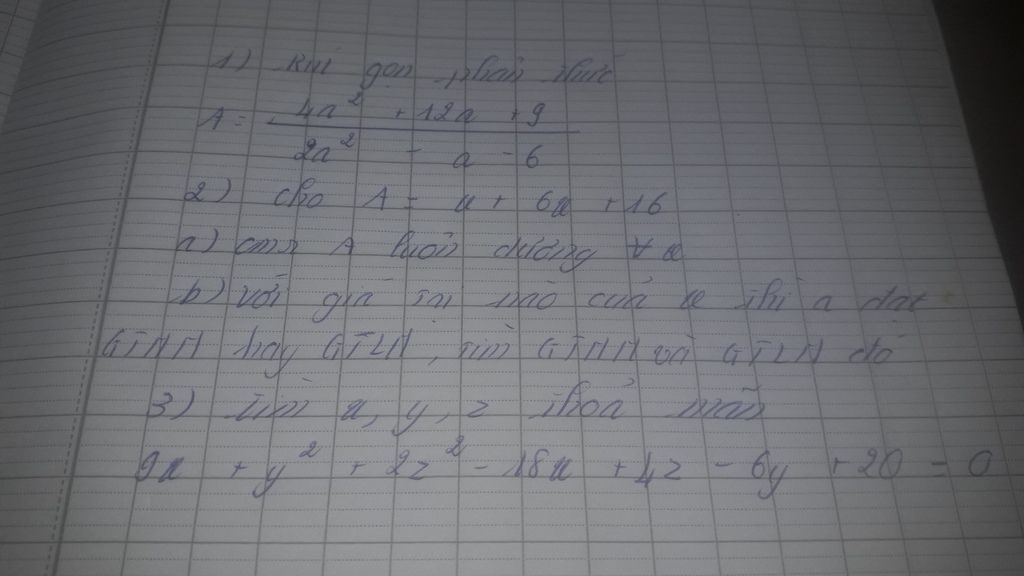 1) Rút gọn phân thức
A = 4a² + 12a + 9
2a² - a - 6
2) cho A = x + 6x + 16
a) cmr A luôn dương ∀ x
b) với giá trị nào của x thì a đạt
GTNN hay GTLN, tìm GTNN và GTLN đó
3) tìm x, y, z thoả mãn
9x + y² + 2z² - 18x + 4z - 6y + 20 = 0